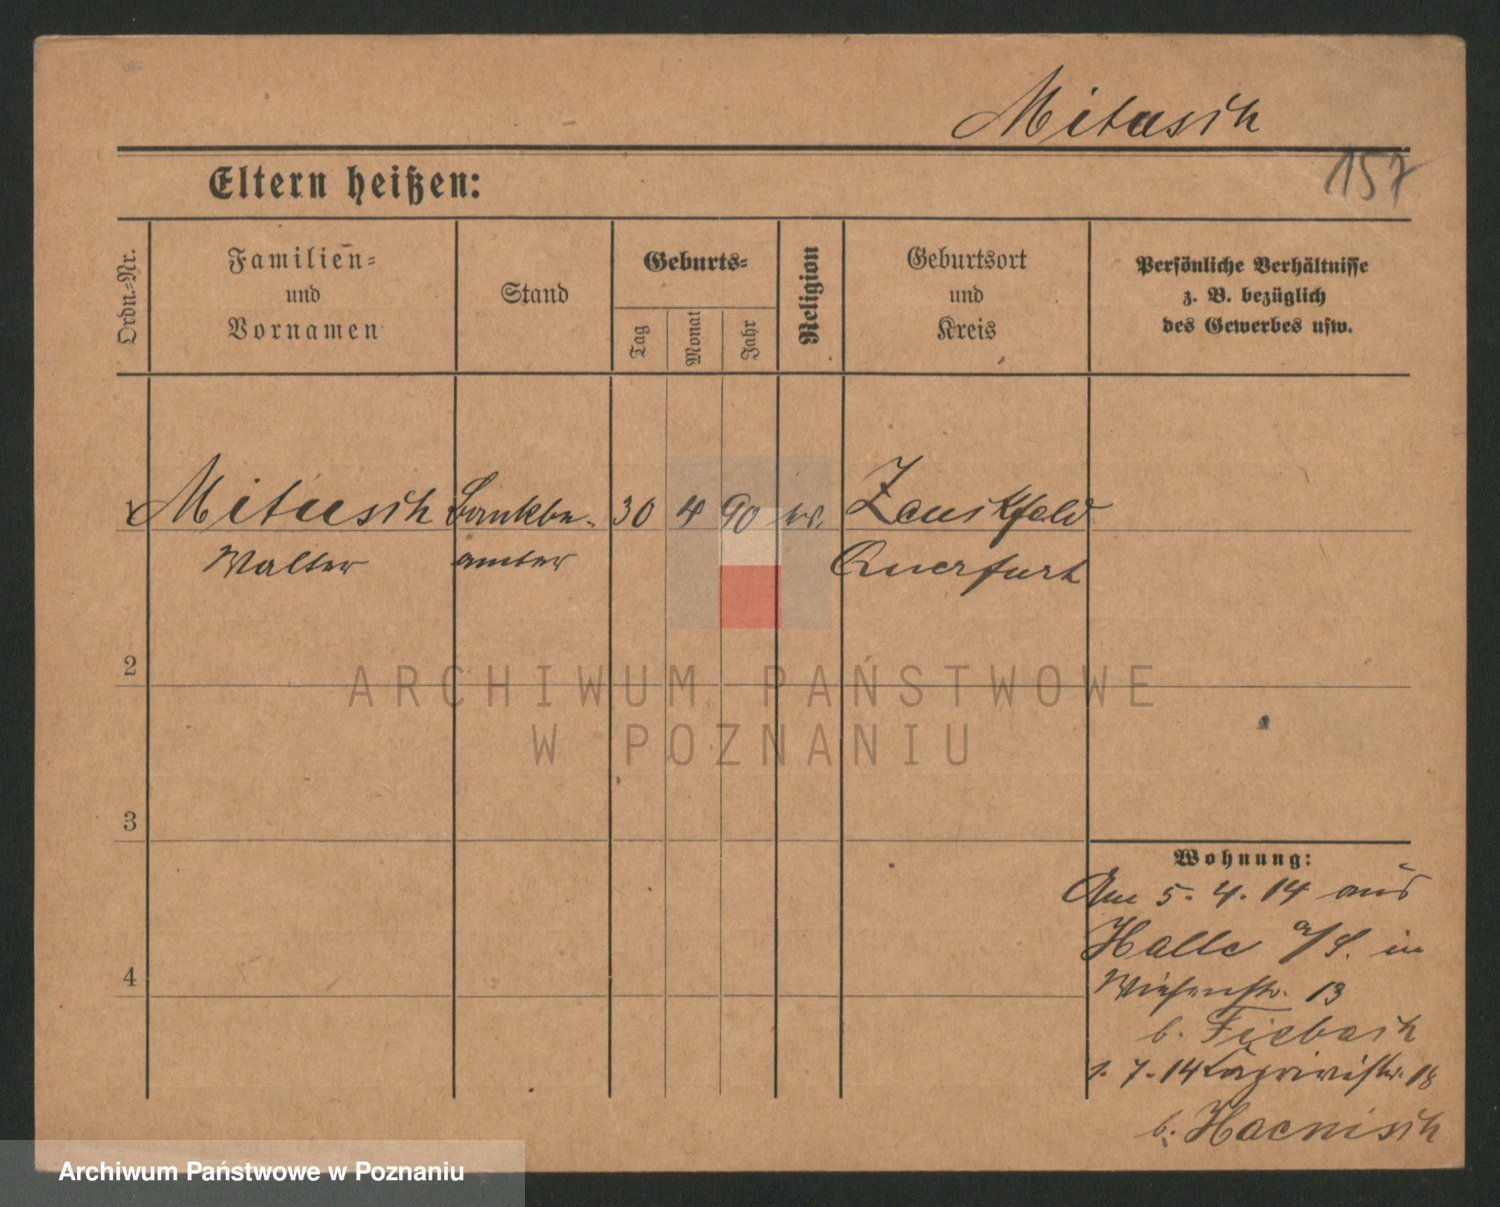 Mitusch
157
Eltern heißen:
Ordn.-Nr.
Familien-
und
Vornamen
Stand
Geburts-
Tag
Monat
Jahr
Religion
Geburtsort
und
Kreis
Persönliche Verhältnisse
z. B. bezüglich
des Gewerbes usw.
1 Mitusch Bankbe- 30 4 90 ev.
Walter amter Querfurt
2
ARCHIWUM PAŃSTWOWE
W POZNANIU
3
Wohnung:
Am 5. 4. 14 aus
Halle a/S. in
4
Wiesenstr. 13
b. Fiebach
1. 7. 14 Caprivistr. 18
b. Haenisch
Archiwum Państwowe w Poznaniu